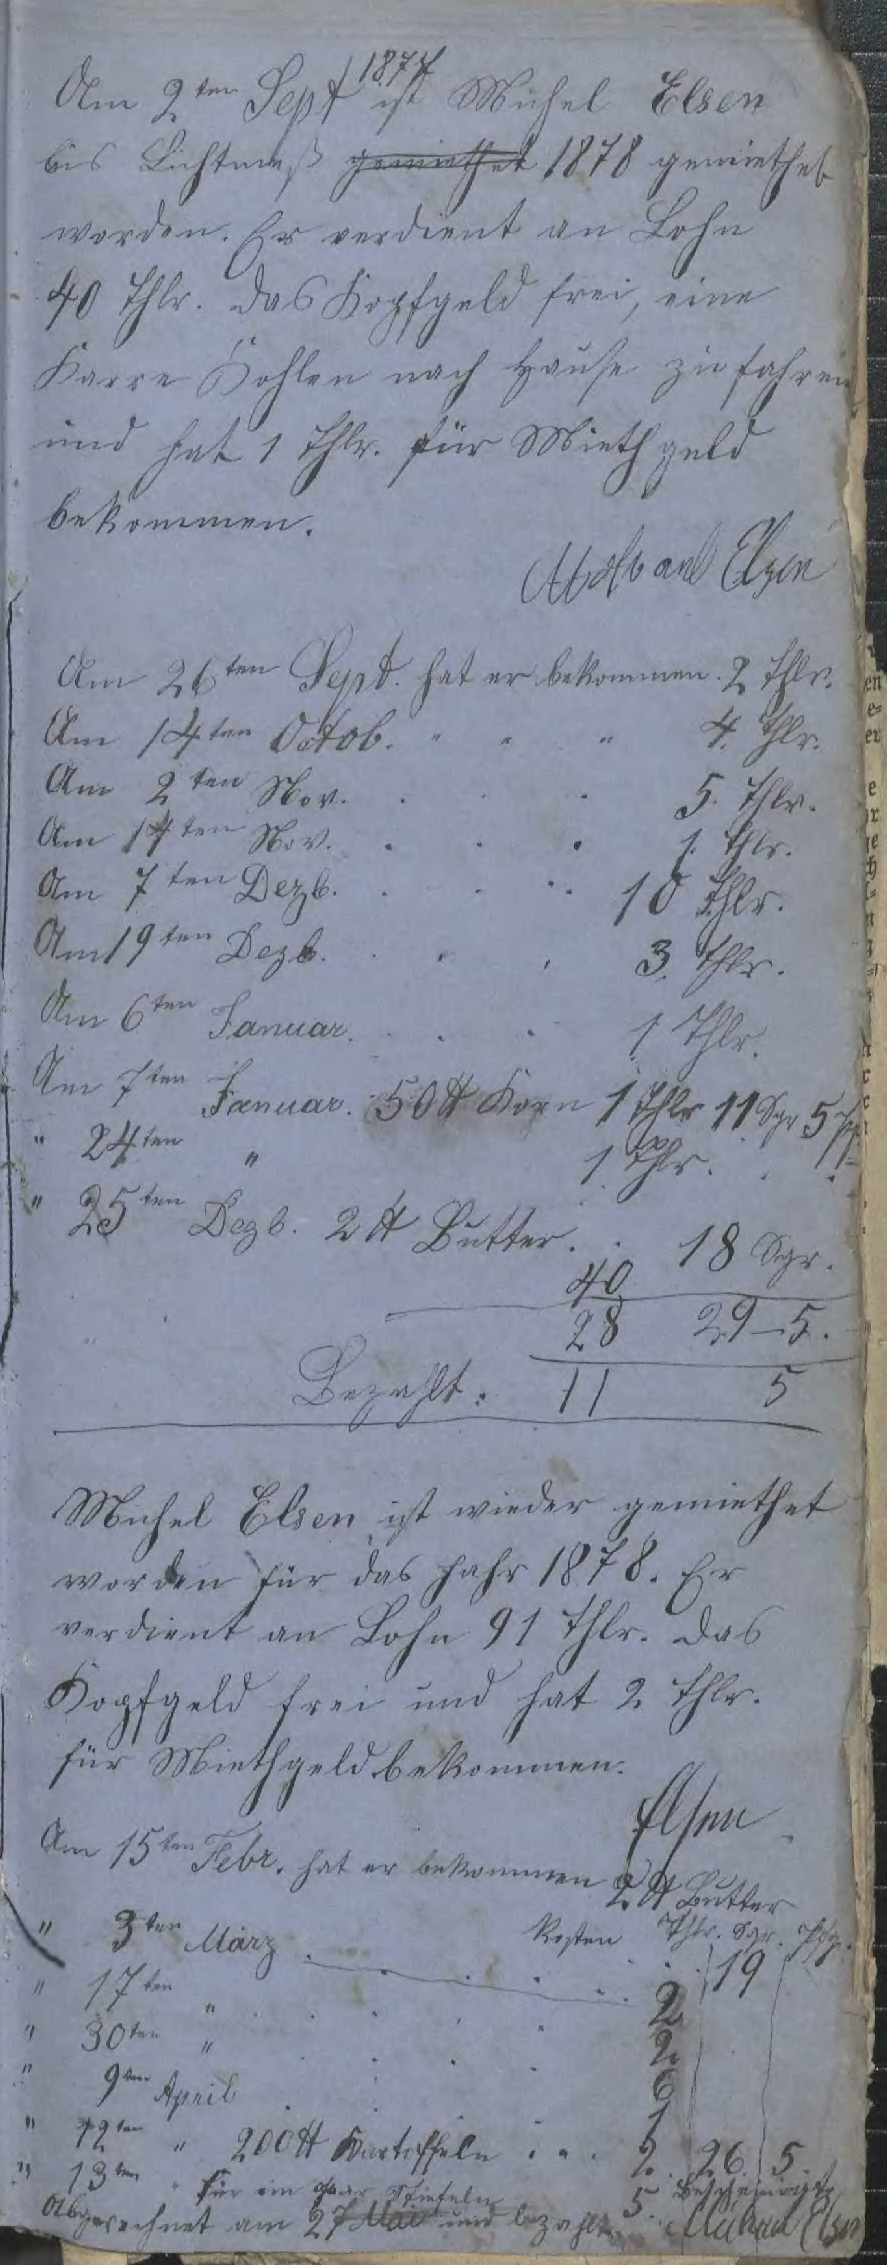 1877
Am 2ten Sept ist Michel Elsen
bis Lichtmeß gemiethet 1878 gemiethet
worden. Er verdient an Lohn
40 Thlr. das Kopfgeld frei, eine
Karre Kohlen nach Hause zu fahren
und hat 1 Thlr. für Miethgeld
bekommen.
Elsen
Am 26ten Sept. hat er bekommen. 2 Thlr.
Am 14ten Octob. " " " 4. Thlr.
Am 2ten Nov. . . . 5. Thlr.
Am 14ten Nov. . . . 1. Thlr.
Am 7ten Dezb. . . . 10 Thlr.
Am 19ten Dezb. . . . 3. Thlr.
Am 6ten Januar. . . . 1 Thlr.
Am 7ten Januar. 50 ℔ Korn 1 Thlr 11 Sgr 5 Pf
" 24ten " 1 Thlr. . .
" 25ten Dezb. 2 ℔ Butter. . 18 Sgr.
40
28 29-5.
Bezahlt: 11 5
Michel Elsen ist wieder gemiethet
worden für das Jahr 1878. Er
verdient an Lohn 91 Thlr. das
Kopfgeld frei und hat 2 Thlr.
für Miethgeld bekommen.
Elsen
Am 15ten Febr. hat er bekommen 2 ℔ Butter
Kosten Thlr. Sgr. Pfg.
19
" 3ten März . . . . 2
" 17ten " . . . . 2.
" 30ten " . . . 6
" 9ten April . . 1
" 12ten " 200 ℔ Kartoffeln . . . 2. 26 5
" 13ten " für ein paar Stiefeln 5. Bescheinigt
Abgerechnet am 27 Mai und bezahlt. Elsen